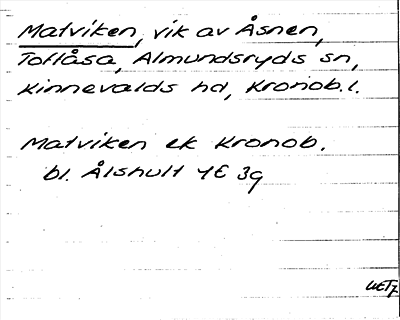 Matviken, vik av Åsnen,
Toflåsa, Almundsryds sn,
Kinnevalds hd, Kronob. l.
Matviken ek Kronob.
bl. Ålshult 4E 3g